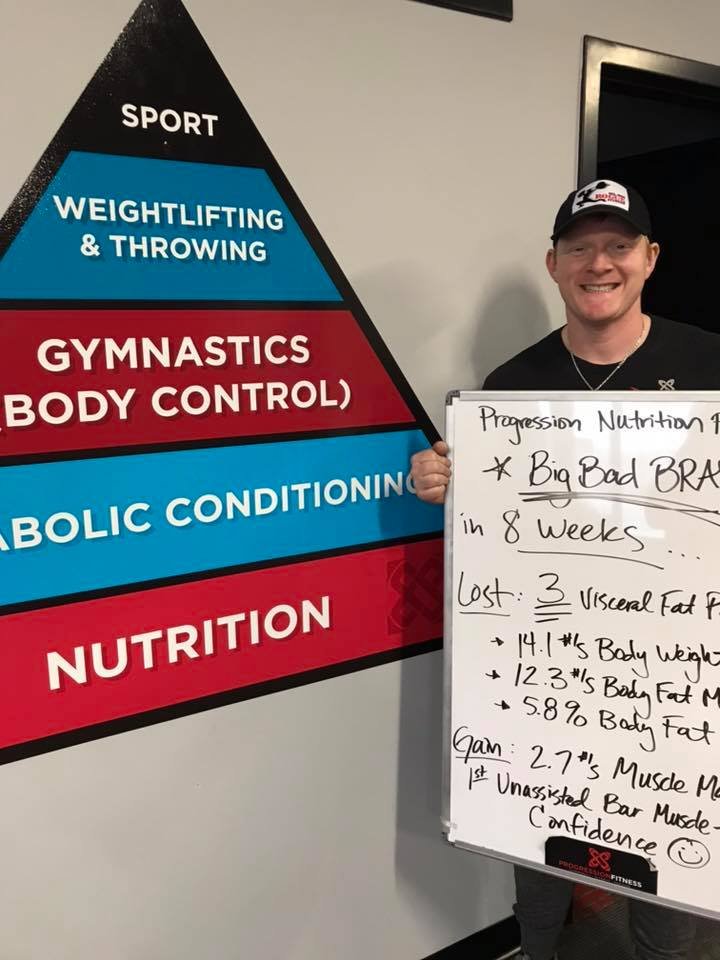 SPORT
WEIGHTLIFTING
& THROWING
GYMNASTICS
(BODY CONTROL)
ABOLIC CONDITIONING
NUTRITION
Progression Nutrition
* Big Bad BRA
in 8 weeks ...
Lost: 3 Visceral Fat P
→ 14.1 #'s Body Weight
→ 12.3 #'s Body Fat M
→ 5.8% Body Fat
Gain: 2.7 #'s Muscle Ma
1st Unassisted Bar Muscle-
Confidence ☺
PROGRESSIONFITNESS